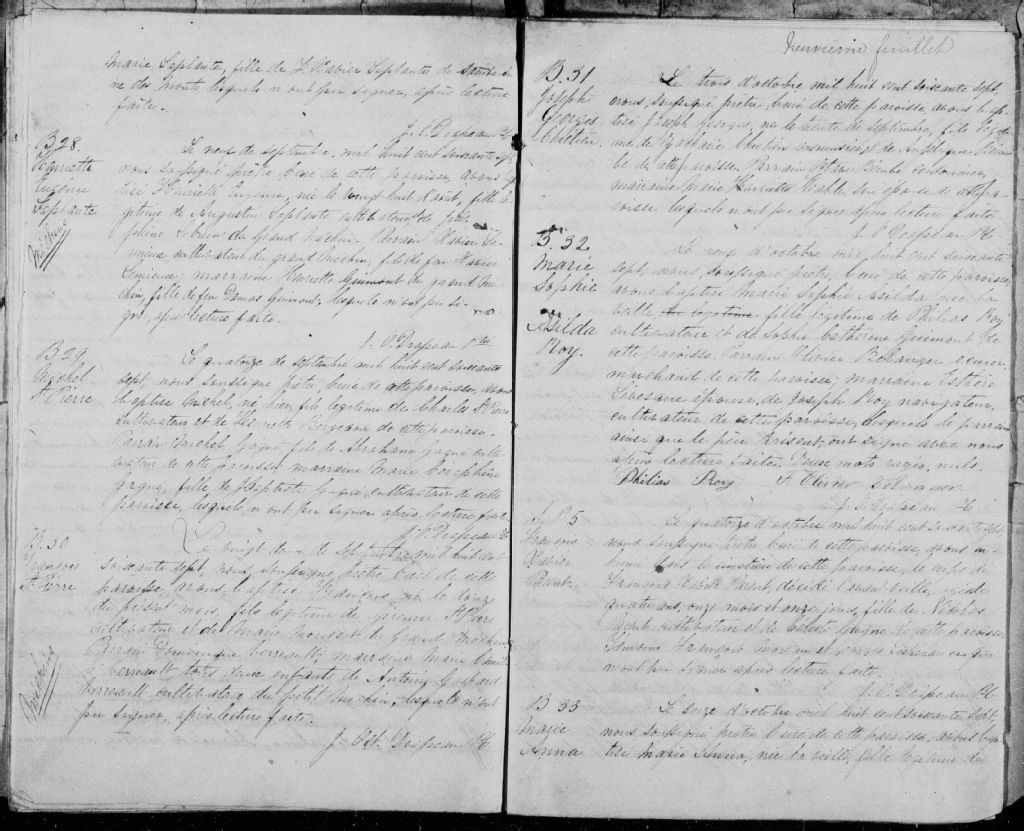 Marie Leplante, fille de F. Xavier Leplante de
ne des Monts lesquels n'ont pu signer, après lecture
faite.
J. O. Drapeau Ptre
B 28.
Henriette
Eugénie
Leplante
Méchins
Le neuf de septembre, mil huit cent soixante sept
nous soussigné prêtre curé de cette paroisse, avons bap
tisé Henriette Eugénie, née le vingt huit d'août, fille lé
gitime de Augustin Leplante cultivateur et de José
phine Lebrun du Grand Méchin. Parrain Xavier Le
mieux cultivateur du grand méchin, fils de feu Xavier
Lemieux, marraine Henriette Guimont du grand mé
chin, fille de feu Damas Guimont, lesquels n'ont pu si
gner, après lecture faite.
J. O. Drapeau Ptre
B 29
Michel
St Pierre
Le quatorze de septembre mil huit cent soixante
sept, nous soussigné prêtre curé de cette paroisse, avons
baptisé Michel, né hier, fils légitime de Charles St Pierre
cultivateur et de Henriette Bergeron de cette paroisse.
Parrain Michel Gagné fils de Abraham Gagné culti
vateur de cette paroisse marraine Marie Josephine
Gagné, fille de Baptiste Gagné, cultivateur de cette
paroisse, lesquels n'ont pu signer après lecture faite.
J. O. Drapeau Ptre
B. 30
François
St Pierre
Méchins
Le vingt deux de septembre mil huit cent
soixante sept, nous, soussigné prêtre curé de cette
paroisse, avons baptisé François, né le douze
du présent mois, fils légitime de St Pierre
cultivateur et de Marie du Grand Méchin
Parrain Dominique Verreault, marraine Marie
Verreault tous deux enfants de Antoine Gaspard
Verreault cultivateur du petit méchin, lesquels n'ont
pu signer, après lecture faite.
J. Oct. Drapeau Ptre
neuvième feuillet
B. 31
Joseph
Georges
Chrétien
Le trois d'octobre mil huit cent soixante sept,
nous, soussigné prêtre curé de cette paroisse, avons bap
tisé Joseph Georges, né le trente de septembre, fils légiti
me de Zacharie Chrétien menuisier et de Angélique
be de cette paroisse. Parrain cordonnier,
marraine Marie Henriette son épouse de cette pa
roisse lesquels n'ont pu signer après lecture faite
J. O. Drapeau Ptre
B. 32
Marie
Sophie
Asilda
Roy.
Le neuf d'octobre mil huit cent soixante
sept, nous, soussigné prêtre, curé de cette paroisse,
avons baptisé Marie Sophie Asilda née la
veille, fille légitime de Philias Roy
cultivateur et de Sophie Catherine Guimont de
cette paroisse. Parrain Olivier Belanger écuier,
marchand de cette paroisse; marraine Esther
Levesque épouse de Joseph Roy navigateur,
cultivateur de cette paroisse, lesquels le parrain
ainsi que le père présent, ont signé avec nous
après lecture faite. Deux mots rayés nuls.
Philias Roy F. Olivier Belanger
J. O. Drapeau Ptre
S. 5
François
Xavier
Parent
Le quatorze d'octobre mil huit cent soixante sept,
nous soussigné prêtre curé de cette paroisse, avons in
humé dans le cimetière de cette paroisse, le corps de
François Xavier Parent, décédé l'avant veille, agé de
quatre ans, onze mois et onze jours, fils de Nicolas
Parent cultivateur et de Céleste Gagné de cette paroisse
Témoins François et Georges qui
n'ont pu signer après lecture faite.
J. O. Drapeau Ptre
B 33
Marie
Anna
Le onze d'octobre mil huit cent soixante sept,
nous soussigné prêtre curé de cette paroisse, avons bap
tisé Marie Anna, née la veille, fille légitime de